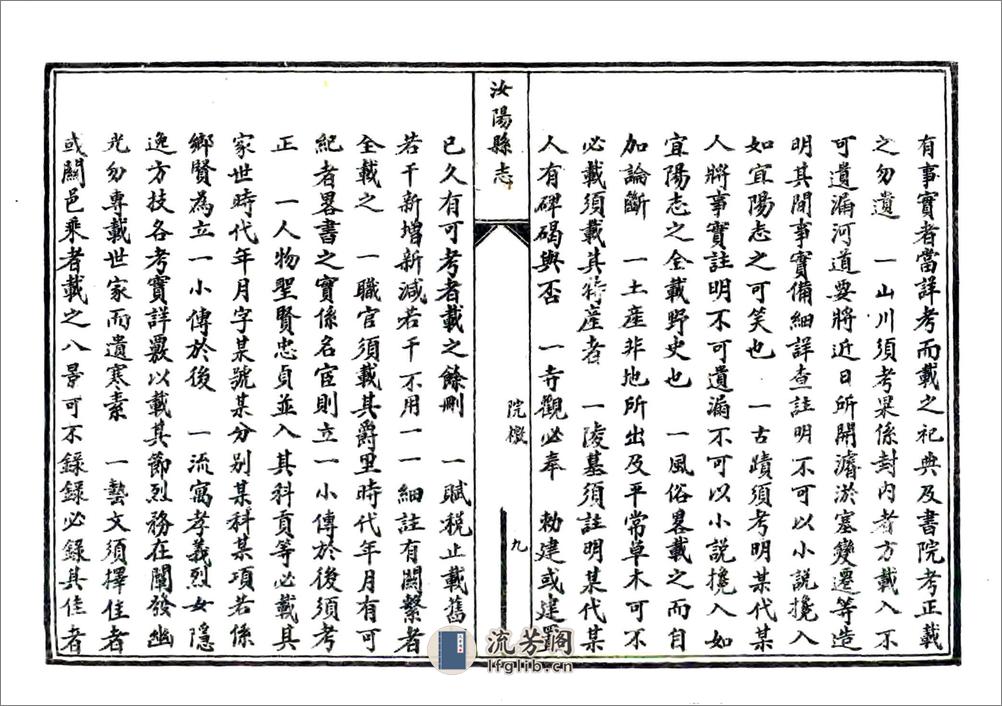 有事實者當詳考而載之祀典及書院考正載
之勿遺　一山川須考果係封內者方載入不
可遺漏河道要將近日所開濬淤塞變遷等造
明其間事實備細詳查註明不可以小說攙入
如宜陽志之可笑也　一古蹟須考明某代某
人將事實註明不可遺漏不可以小說攙入如
宜陽志之全載野史也　一風俗畧載之而自
加論斷　一土產非地所出及平常草木可不
必載須載其特產者　一陵墓須註明某代某
人有碑碣與否　一寺觀必奉　勅建或建置
汝陽縣志
院檄
九
已久有可考者載之餘刪　一賦稅止載舊
若干新增新減若干不用一一細註有關繫者
全載之　一職官須載其爵里時代年月有可
紀者畧書之實係名宦則立一小傳於後須考
正　一人物聖賢忠貞並入其科貢等必載其
家世時代年月字某號某分別某科某項若係
鄉賢為立一小傳於後　一流寓孝義烈女隱
逸方技各考實詳覈以載其節烈務在闡發幽
光勿專載世家而遺寒素　一藝文須擇佳者
或關邑乘者載之八景可不錄錄必錄其佳者
流芳閣
lfglib.cn